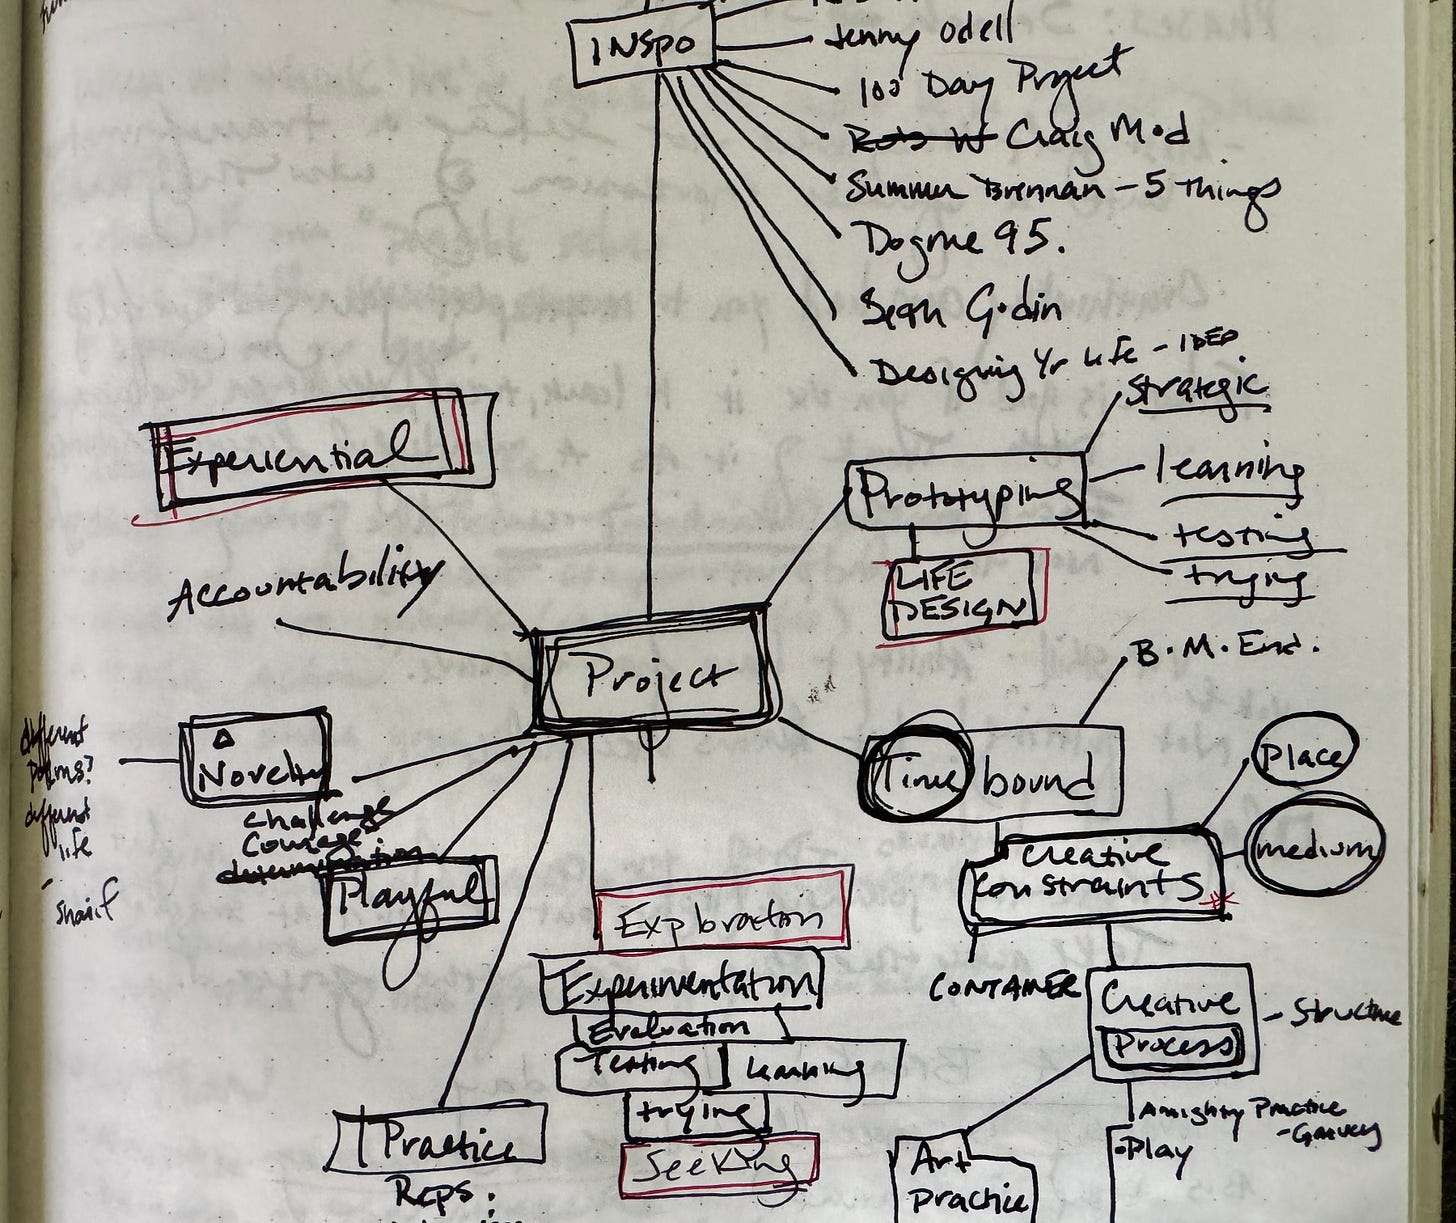 INSPO
Jenny Odell
100 Day Project
Craig Mod
Summer Brennan - 5 Things
Dogme 95.
Seth Godin
Designing Yr Life - IDEO
Strategic
Experiential
Prototyping
learning
testing
trying
LIFE
DESIGN
Accountability
Project
B.M. End.
different
poems?
different
life
- Sharif
Novelty
Time bound
Place
medium
challenge
Courage
determination
Playful
Creative
Constraints
Exploration
Experimentation
Evaluation
Testing
Learning
trying
Seeking
CONTAINER
Creative
Process
- Structure
Practice
Reps.
Art
Practice
Play